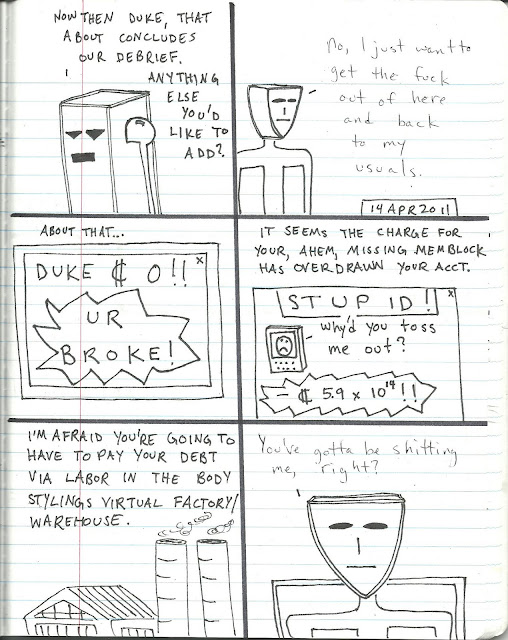 NOW THEN DUKE, THAT
ABOUT CONCLUDES
OUR DEBRIEF.
ANYTHING
ELSE
YOU'D
LIKE TO
ADD?
No, I just want to
get the fuck
out of here
and back
to my
usuals.
14 APR 2011
ABOUT THAT...
x
DUKE ₵ 0!!
UR
BROKE!
IT SEEMS THE CHARGE FOR
YOUR, AHEM, MISSING MEMBLOCK
HAS OVERDRAWN YOUR ACCT.
x
STUPID!
why'd you toss
me out?
- ₵ 5.9 x 10¹⁹!!
I'M AFRAID YOU'RE GOING TO
HAVE TO PAY YOUR DEBT
VIA LABOR IN THE BODY
STYLINGS VIRTUAL FACTORY/
WAREHOUSE.
You've gotta be shitting
me, right?